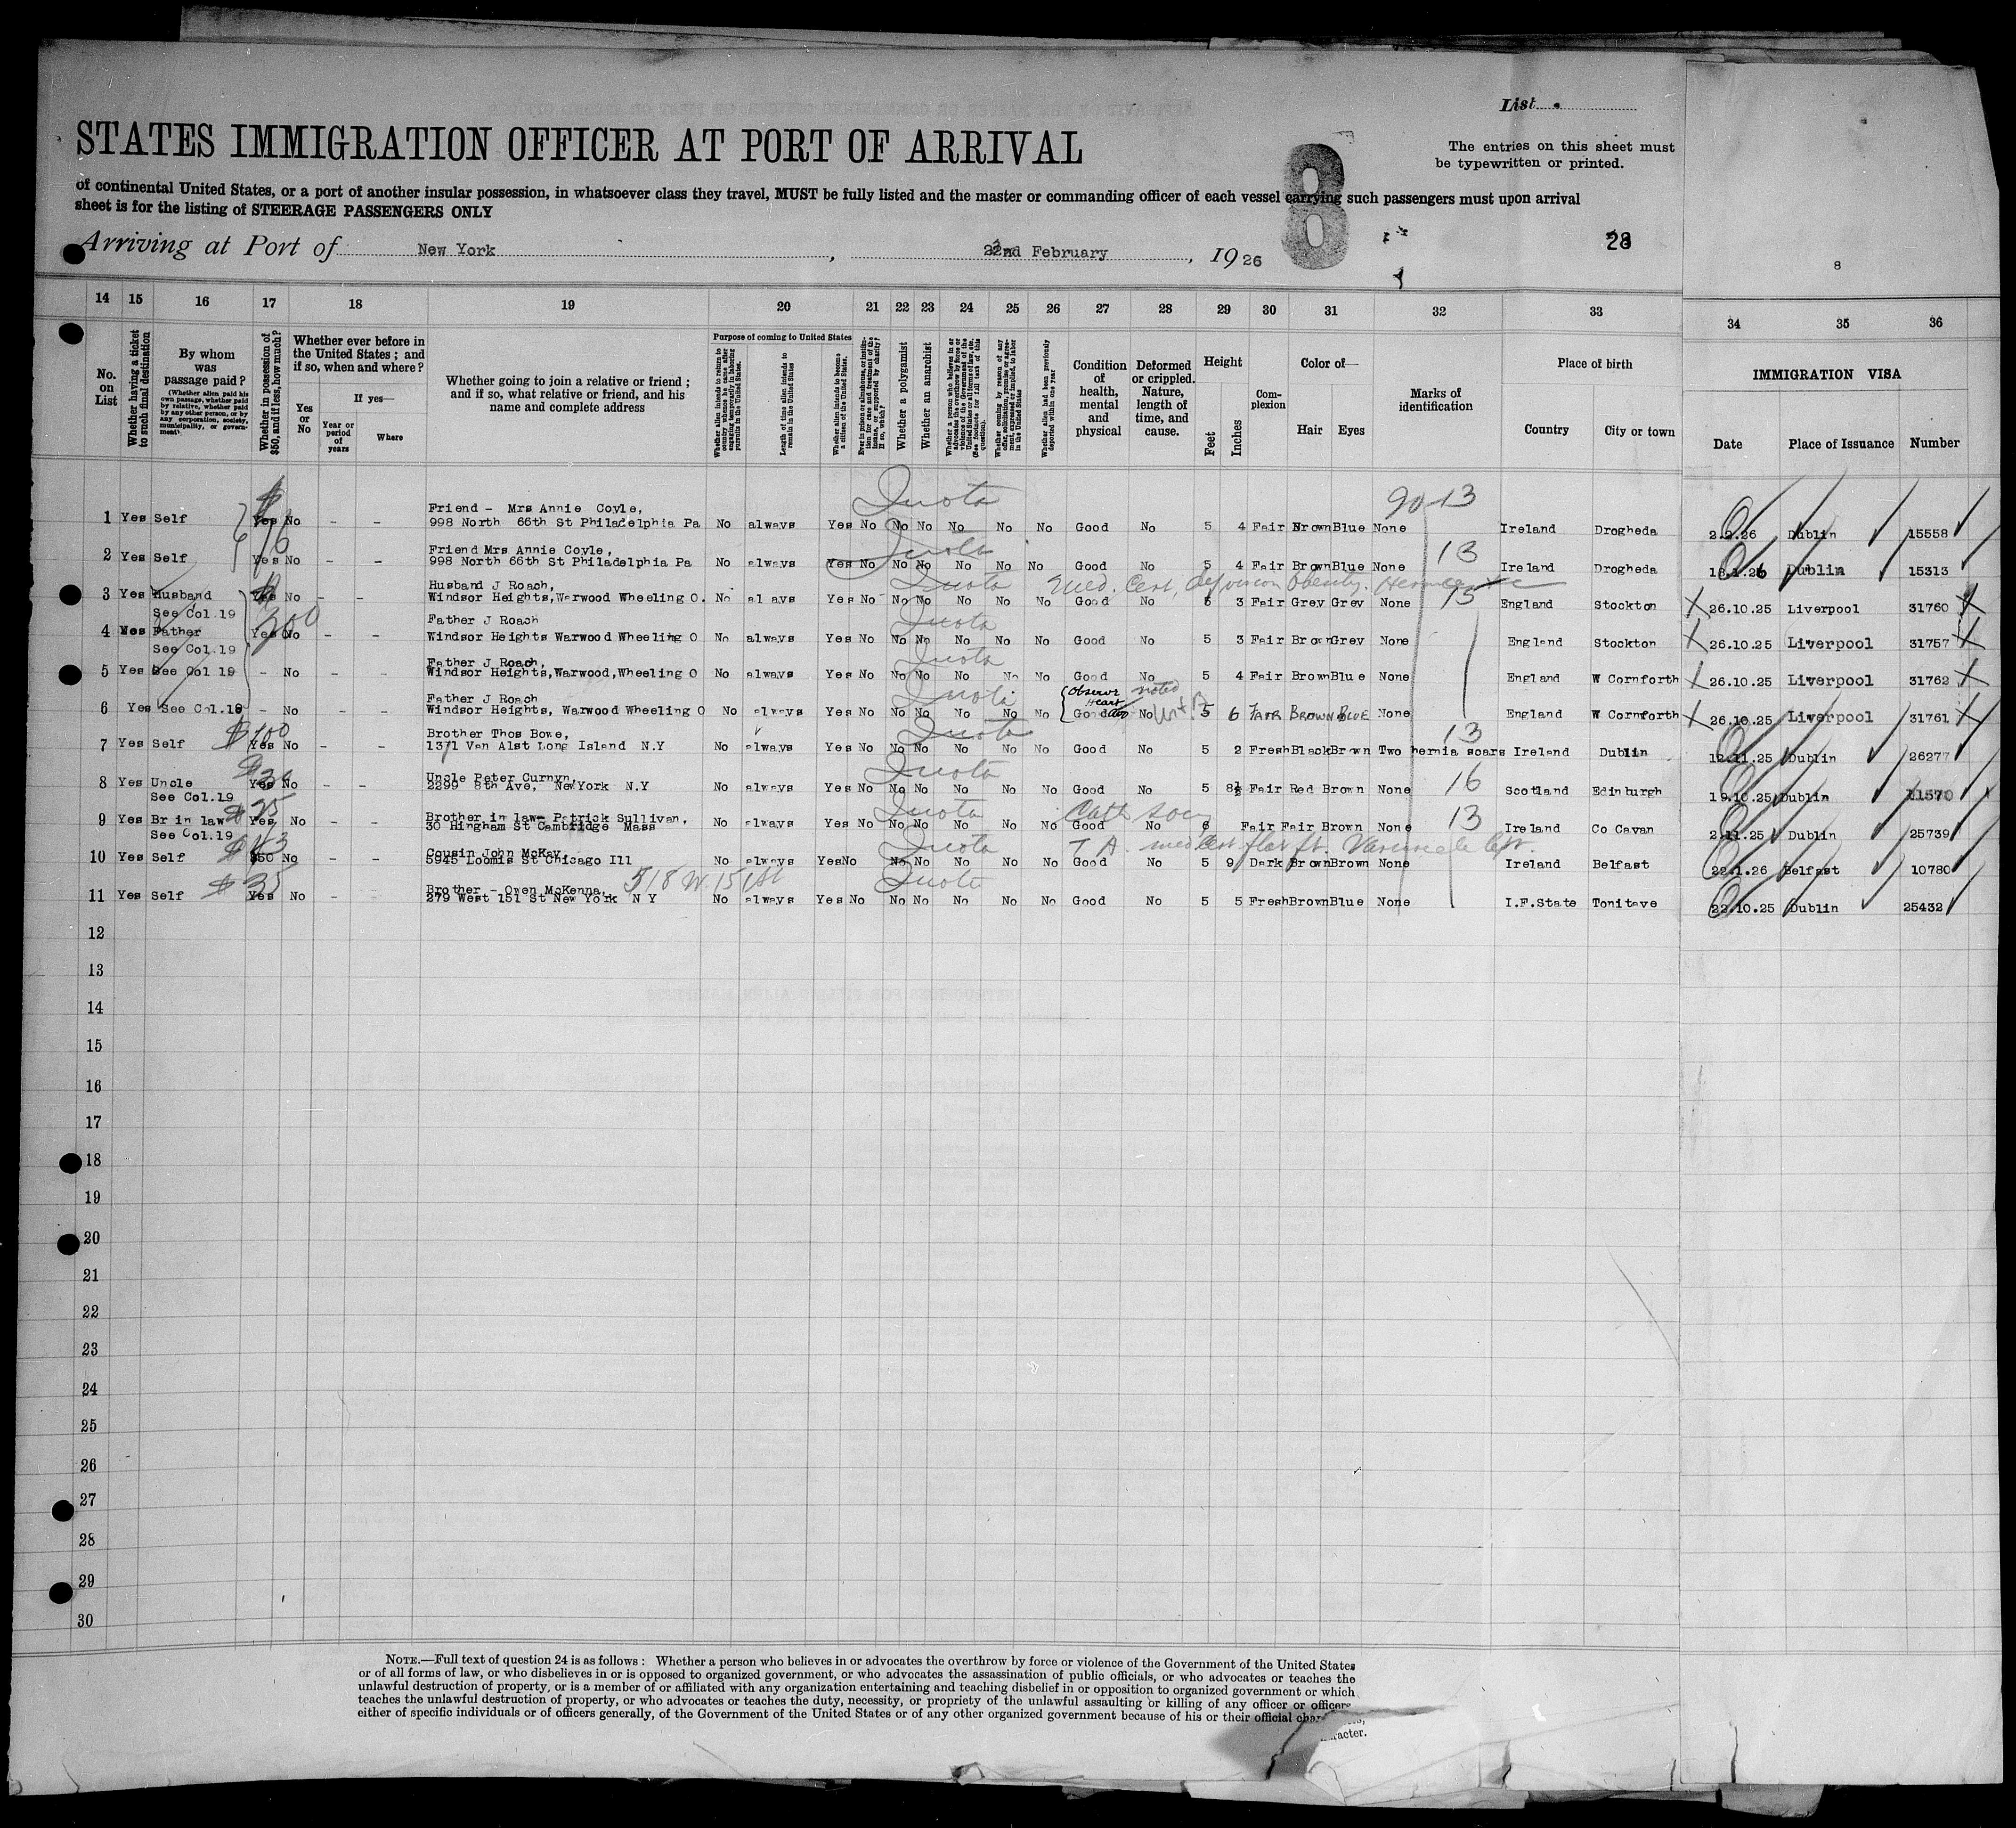 List
STATES IMMIGRATION OFFICER AT PORT OF ARRIVAL
The entries on this sheet must
be typewritten or printed.
8
of continental United States, or a port of another insular possession, in whatsoever class they travel, MUST be fully listed and the master or commanding officer of each vessel carrying such passengers must upon arrival
sheet is for the listing of STEERAGE PASSENGERS ONLY
Arriving at Port of New York, 22nd February, 1926
28
8
14 15 16 17 18 19 20 21 22 23 24 25 26 27 28 29 30 31 32 33 34 35 36
No. on List
Whether having a ticket to such final destination
By whom was passage paid?
(Whether alien paid his own passage, whether paid by relative, whether paid by any other person, or by any corporation, society, municipality, or government)
Whether in possession of $50, and if less, how much?
Whether ever before in the United States; and if so, when and where?
Yes or No
If yes—
Year or period of years
Where
Whether going to join a relative or friend; and if so, what relative or friend, and his name and complete address
Purpose of coming to United States
Whether alien intends to return to country whence he came after engaging temporarily in laboring pursuits in the United States.
Length of time alien intends to remain in the United States
Whether alien intends to become a citizen of the United States.
Whether a polygamist
Whether an anarchist
Whether alien had been previously deported within one year
Condition of health, mental and physical
Deformed or crippled. Nature, length of time, and cause.
Height
Feet
Inches
Complexion
Color of—
Hair
Eyes
Marks of identification
Place of birth
Country
City or town
IMMIGRATION VISA
Date
Place of Issuance
Number
Quota 90 13
Friend - Mrs Annie Coyle,
1 Yes Self Yes No - - 998 North 66th St Philadelphia Pa No always Yes No No No No No No Good No 5 4 Fair Brown Blue None Ireland Drogheda 2.2.26 Dublin 15558
Quota 13
Friend Mrs Annie Coyle,
2 Yes Self Yes No - - 998 North 66th St Philadelphia Pa No always Yes No No No No No No Good No 5 4 Fair Brown Blue None Ireland Drogheda 18.1.26 Dublin 15313
Quota Med. Cert. 15
Husband J Roach,
3 Yes Husband Yes No - - Windsor Heights, Warwood Wheeling O. No al ays Yes No No No No No No Good No 5 3 Fair Grey Grey None England Stockton 26.10.25 Liverpool 31760
See Col.19 300
Father J Roach Quota
4 Yes Father Yes No - - Windsor Heights Warwood Wheeling O No always Yes No No No No No No Good No 5 3 Fair Brown Grey None England Stockton 26.10.25 Liverpool 31757
See Col.19
Father J Roach, Quota
5 Yes See Col 19 - No Windsor Heights, Warwood, Wheeling O No always Yes No No No No No No Good No 5 4 Fair Brown Blue None England W Cornforth 26.10.25 Liverpool 31762
Father J Roach Quota Observe Heart noted
6 Yes See Col.19 - No - - Windsor Heights, Warwood Wheeling O No always Yes No No No No No No Good No 5 6 FAIR BROWN BLUE None England W Cornforth 26.10.25 Liverpool 31761
$100 Quota 13
Brother Thos Bowe,
7 Yes Self Yes No - - 1371 Van Alst Long Island N.Y No always Yes No No No No No No Good No 5 2 Fresh Black Brown Two hernia scars Ireland Dublin 12.11.25 Dublin 26277
Quota 16
Uncle Peter Curnyn,
8 Yes Uncle Yes No - - 2299 8th Ave, NewYork N.Y No always Yes No No No No No No Good No 5 8½ Fair Red Brown None Scotland Edinburgh 19.10.25 Dublin 11570
See Col.19
$25 Quota 13
Brother in law- Patrick Sullivan,
9 Yes Br in law Yes No - - 30 Hingham St Cambridge Mass No always Yes No No No No No No Good No 6 Fair Fair Brown None Ireland Co Cavan 2.11.25 Dublin 25739
See Col.19
Quota med cert flat ft. Varicocele left.
Cousin John McKay
10 Yes Self $50 No - - 5945 Loomis St Chicago Ill No always Yes No No No No No No Good No 5 9 Dark Brown Brown None Ireland Belfast 22.1.26 Belfast 10780
$35 518 W. 151st Quota
Brother - Owen McKenna,
11 Yes Self Yes No - - 279 West 151 St New York N Y No always Yes No No No No No No Good No 5 5 Fresh Brown Blue None I.F.State Tonitave 22.10.25 Dublin 25432
12
13
14
15
16
17
18
19
20
21
22
23
24
25
26
27
28
29
30
NOTE.—Full text of question 24 is as follows: Whether a person who believes in or advocates the overthrow by force or violence of the Government of the United States
or of all forms of law, or who disbelieves in or is opposed to organized government, or who advocates the assassination of public officials, or who advocates or teaches the
unlawful destruction of property, or is a member of or affiliated with any organization entertaining and teaching disbelief in or opposition to organized government or which
teaches the unlawful destruction of property, or who advocates or teaches the duty, necessity, or propriety of the unlawful assaulting or killing of any officer or officers,
either of specific individuals or of officers generally, of the Government of the United States or of any other organized government because of his or their official